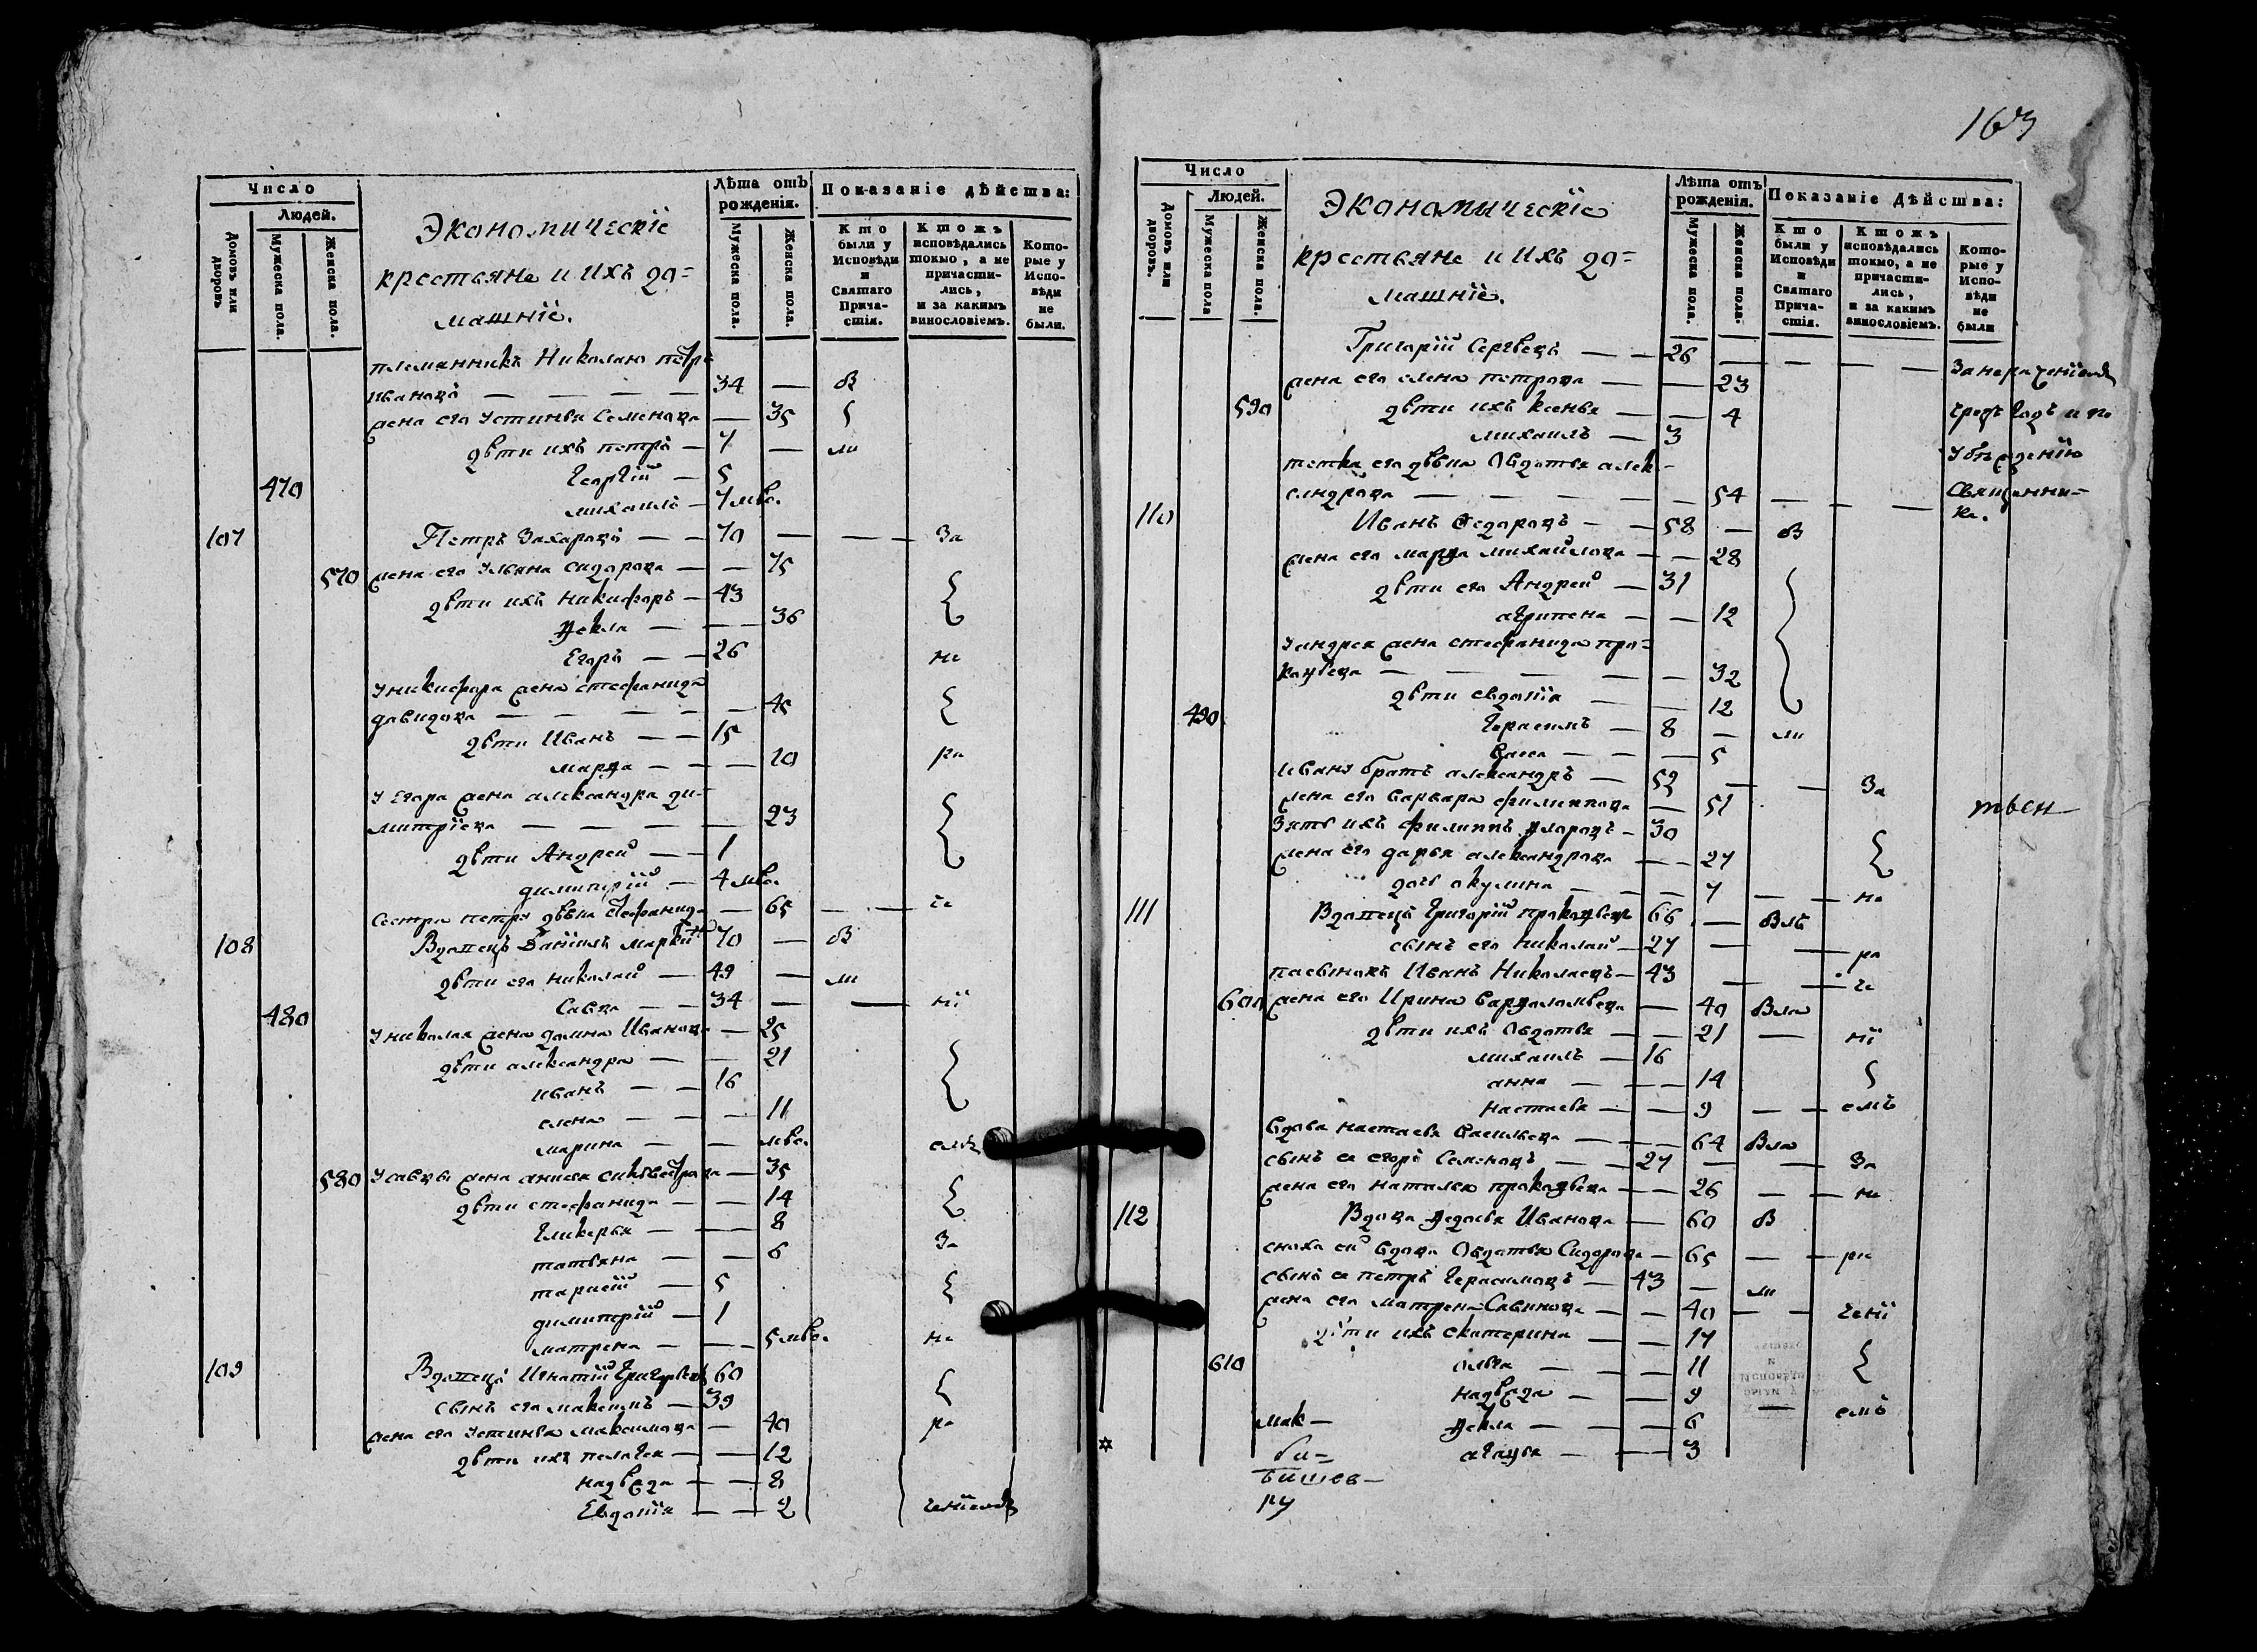 Число
Людей.
Домовъ или дворовъ
Мужеска пола.
Женска пола.
Экономическіе
крестьяне и ихъ до=
машніе.
Лѣта отъ рожденія.
Мужеска пола.
Женска пола.
Показаніе дѣйства:
Кто были у Исповѣди и Святаго Прича-стія.
Ктожъ исповѣдались токмо, а не причасти-лись, и за какимъ винословіемъ.
Кото-рые у Испо-вѣди не были.
племянникъ Николаю петръ
Ивановъ — — — — 34 — в
жена его Устинья Семенова — 35
дѣти ихъ петръ — 7 — ли
Георгій — 5
470 михаилъ — 7 мѣс.
107 Петръ Захаровъ — — 70 — — — За
570 жена его Ульяна сидорова — — 75
дѣти ихъ никифоръ — 43
Ѳекла — — — 36
Егоръ — — 26 не
У никифора жена стефанида
давидова — — — — — 45
дѣти Иванъ — — 15
марѳа — — — 10 ра
У Егора жена александра ди=
митріева — — — — 23
дѣти Андрей — — 1
димитрій — 4 мѣс.
Сестра петру дѣвка стефанида — 65 — — че
108 Вдовецъ Даніилъ Маркинъ 70 — в
дѣти его николай — 49 — ли
Савва — — 34 — — ні
480 У николая жена домна Иванова — 25
дѣти александра — — 21
иванъ — — 16
елена — — — 11
марина — — мѣс. емъ
580 У саввы жена анисья сильвестрова — 35
дѣти стефанида — — 14
Гликерья — — 8
татьяна — — 6 За
тарасій — 5
димитрій — 1
матрена — — 5 мѣс. не
109 Вдовецъ Игнатій Григорьевъ 60
сынъ его максимъ — 39
жена его Устинья максимова — 40 ра
дѣти ихъ пелагея — — 12
надѣжда — — 8
Евдокія — — 2 ченіемъ
163
Число
Людей.
Домовъ или дворовъ.
Мужеска пола
Женска пола.
Экономическіе
крестьяне и ихъ до=
машніе.
Лѣта отъ рожденія.
Мужеска пола.
Женска пола.
Показаніе Дѣйства:
Кто были у Исповѣди и Святаго Прича-стія.
Ктожъ исповѣдались токмо, а не причасти-лись, и за какимъ винословіемъ.
Кото-рые у Испо-вѣди не были
Григорій Сергѣевъ — — 26 — — — — За нераченіемъ
жена его елена петрова — — 23
590 дѣти ихъ ксенья — — 4 чрезъ Годъ и по
михаилъ — 3
тетка его дѣвка Овдотья алек- Убѣжденію
сандрова — — — — — 54 — — — Священни=
ка.
110 Иванъ Ѳедоровъ — — 58 — в
жена его марѳа михайлова — — 28
дѣти его Андрей — 31
агрипена — — 12
У андрея жена стефанида про=
кофьева — — — — — 32
дѣти евдокія — — 12
490 Герасимъ — 8 — ли
Васса — — — 5
Ивану братъ александръ — 52 — — За
жена его варвара филиппова — 51
Зять ихъ филиппъ Ѳлоровъ — 30
жена его дарья александрова — — 27
дочь акулина — — — 7 — — не
111 Вдовецъ Григорій прокофьевъ 66 — Былъ
сынъ его николай — 27 — — ра
пасынокъ Иванъ Николаевъ — 43 — — че
600 жена его Ирина варѳоломѣева — 40 Была
дѣти ихъ Овдотья — — 21 — ні
михаилъ — 16
анна — — — 14
Настасья — — 9 — — емъ
вдова настасья Васильева — — — 64 Была
сынъ ея егоръ Семеновъ — — 27 — — За
жена его наталья прокофьева — — 26 — — не
112 Вдова Ѳедосья Иванова — 60 в
сноха ей вдова Овдотья Сидорова — 65 — — ра
сынъ ея петръ Герасимовъ — 43 — ли
жена его матрена Савинова — — 40 — — чені
дѣти ихъ екатерина — — 17
610 ольга — — 11
надѣжда — — 9
Ѳекла — — — 6 — емъ
агаѳья — — — 3
твен—
мак—